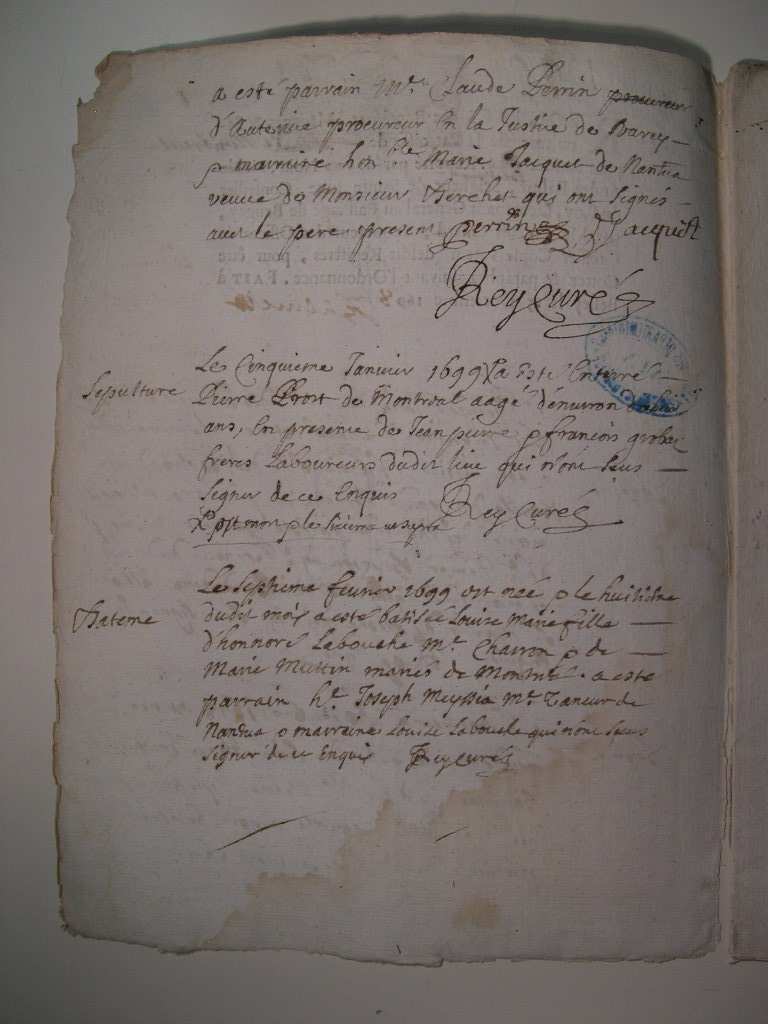 a esté parrain Mr. Claude Perrin procureur
d'Autenue procureur En la Justice de Varey
& marraine hon.ble Marie Jacquet de Nantua
veuve de Monsieur qui ont Signés
avec le pere present perrin Jacquet
Rey Curé
Sepulture
Le Cinquieme Janvier 1699 a Esté Enterré
Pierre Prost de Montreal aagé d'énuiron
ans, En presence de Jean pierre & francois
freres Laboureurs dudit lieu qui n'ont Seus
Signer de ce Enquis Rey Curé
Bateme
Le Septieme feurier 1699 est née & le huitième
dudit mois a esté batisée Louise Marie fille
d'honnoré Labouche Mr. Charron & de
Marie Muttin mariés de Montreal. a esté
parrain h. Joseph Meyssia Mr. Taneur de
Nantua & marraine Louise Labouche qui n'ont Seus
Signer de ce Enquis Rey Curé